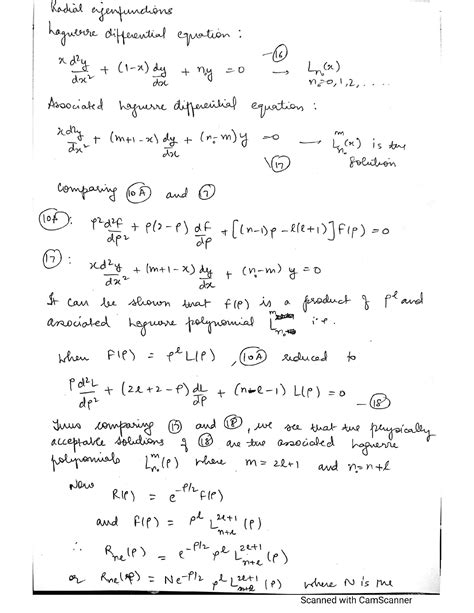 Radial eigenfunctions
Laguerre differential equation :
x d²y/dx² + (1-x) dy/dx + ny = 0 —(16) → Lₙ₀(x)
n₀=0,1,2, ....
Associated Laguerre differential equation :
x d²y/dx² + (m+1-x) dy/dx + (n₀-m) y = 0 → Lₙ₀ᵐ(x) is the
(17) solution
Comparing (10A) and (7)
(10A): ρ² d²f/dρ² + ρ(2-ρ) df/dρ + [(n-1)ρ - l(l+1)] F(ρ) = 0
(17) : x d²y/dx² + (m+1-x) dy/dx + (n₀-m) y = 0
It can be shown that f(ρ) is a product of ρˡ and
associated Laguerre polynomial i.e.
when F(ρ) = ρˡ L(ρ), (10A) reduced to
ρ d²L/dρ² + (2l+2-ρ) dL/dρ + (n-l-1) L(ρ) = 0 —(18)
Thus comparing (17) and (18), we see that the physically
acceptable solutions of (18) are the associated Laguerre
polynomials Lₙ₀ᵐ(ρ) where m = 2l+1 and n₀ = n+l
Now
R(ρ) = e^-ρ/2 f(ρ)
and F(ρ) = ρˡ L²ˡ⁺¹ₙ₊ₗ (ρ)
∴ Rₙₗ(ρ) = e^-ρ/2 ρˡ L²ˡ⁺¹ₙ₊ₗ (ρ)
or Rₙₗ(ρ) = N e^-ρ/2 ρˡ L²ˡ⁺¹ₙ₊ₗ (ρ) where N is the
Scanned with CamScanner